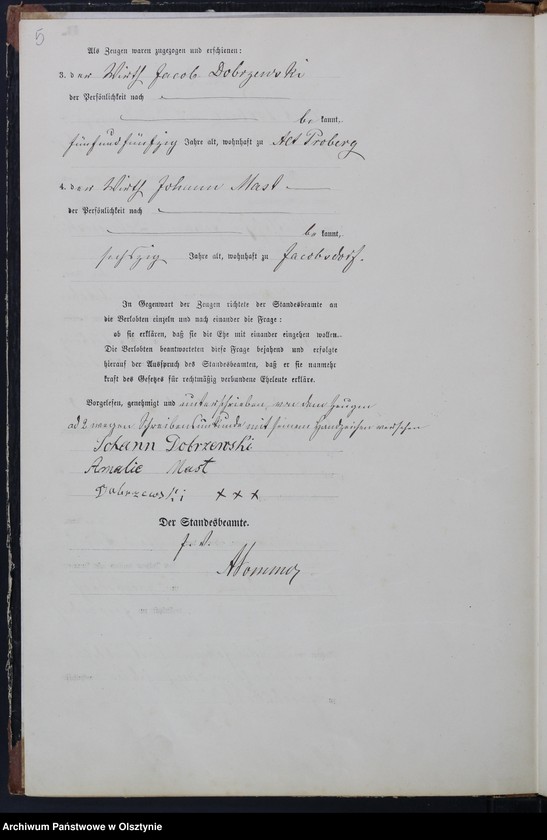 5
Als Zeugen waren zugezogen und erschienen:
3. der Wirth Jacob Dobrzewski
der Persönlichkeit nach
be kannt,
fünfundfünfzig Jahre alt, wohnhaft zu Alt Proberg
4. der Wirth Johann Mast
der Persönlichkeit nach
be kannt,
sechszig Jahre alt, wohnhaft zu Jacobsdorf.
In Gegenwart der Zeugen richtete der Standesbeamte an
die Verlobten einzeln und nach einander die Frage:
ob sie erklären, daß sie die Ehe mit einander eingehen wollen.
Die Verlobten beantworteten diese Frage bejahend und erfolgte
hierauf der Ausspruch des Standesbeamten, daß er sie nunmehr
kraft des Gesetzes für rechtmäßig verbundene Eheleute erkläre.
Vorgelesen, genehmigt und unterschrieben, von dem Zeugen
ad 2 wegen Schreibensunkunde mit seinem Handzeichen versehen
Johann Dobrzewski
Amalie Mast
Dobrzewski + + +
Der Standesbeamte.
J. V.
Archiwum Państwowe w Olsztynie